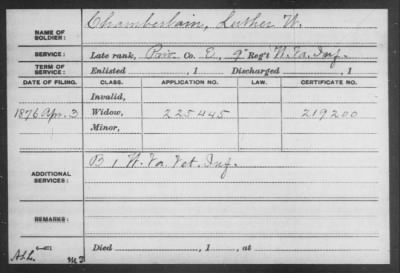 NAME OF SOLDIER: Chamberlain, Luther W.
SERVICE: Late rank, Priv Co. E, 9" Reg't W. Va. Inf.
TERM OF SERVICE: Enlisted , 1 Discharged , 1
DATE OF FILING. CLASS. APPLICATION NO. LAW. CERTIFICATE NO.
Invalid,
1876 Apr. 3 Widow, 225.445 219200
Minor,
ADDITIONAL SERVICES: B 1 W. Va. Vet. Inf.
REMARKS:
Died , 1 , at